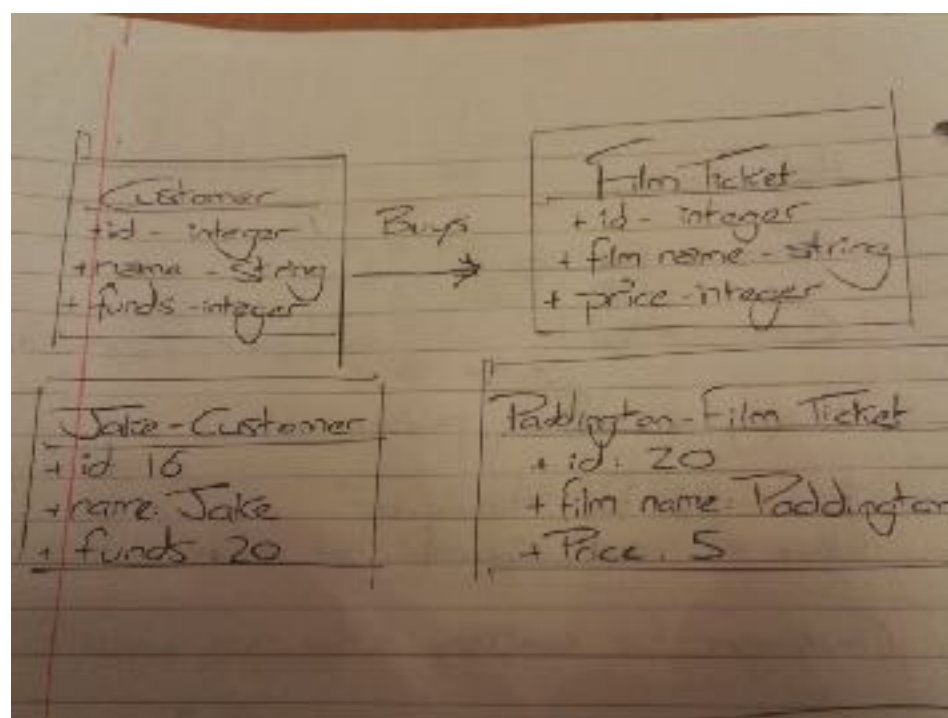 Customer
+id - integer
+name - string
+ funds - integer
Buys
Film Ticket
+ id - integer
+ film name - string
+ price - integer
Jake - Customer
+ id: 16
+ name: Jake
+ funds: 20
Paddington - Film Ticket
+ id: 20
+ film name: Paddington
+ Price: 5